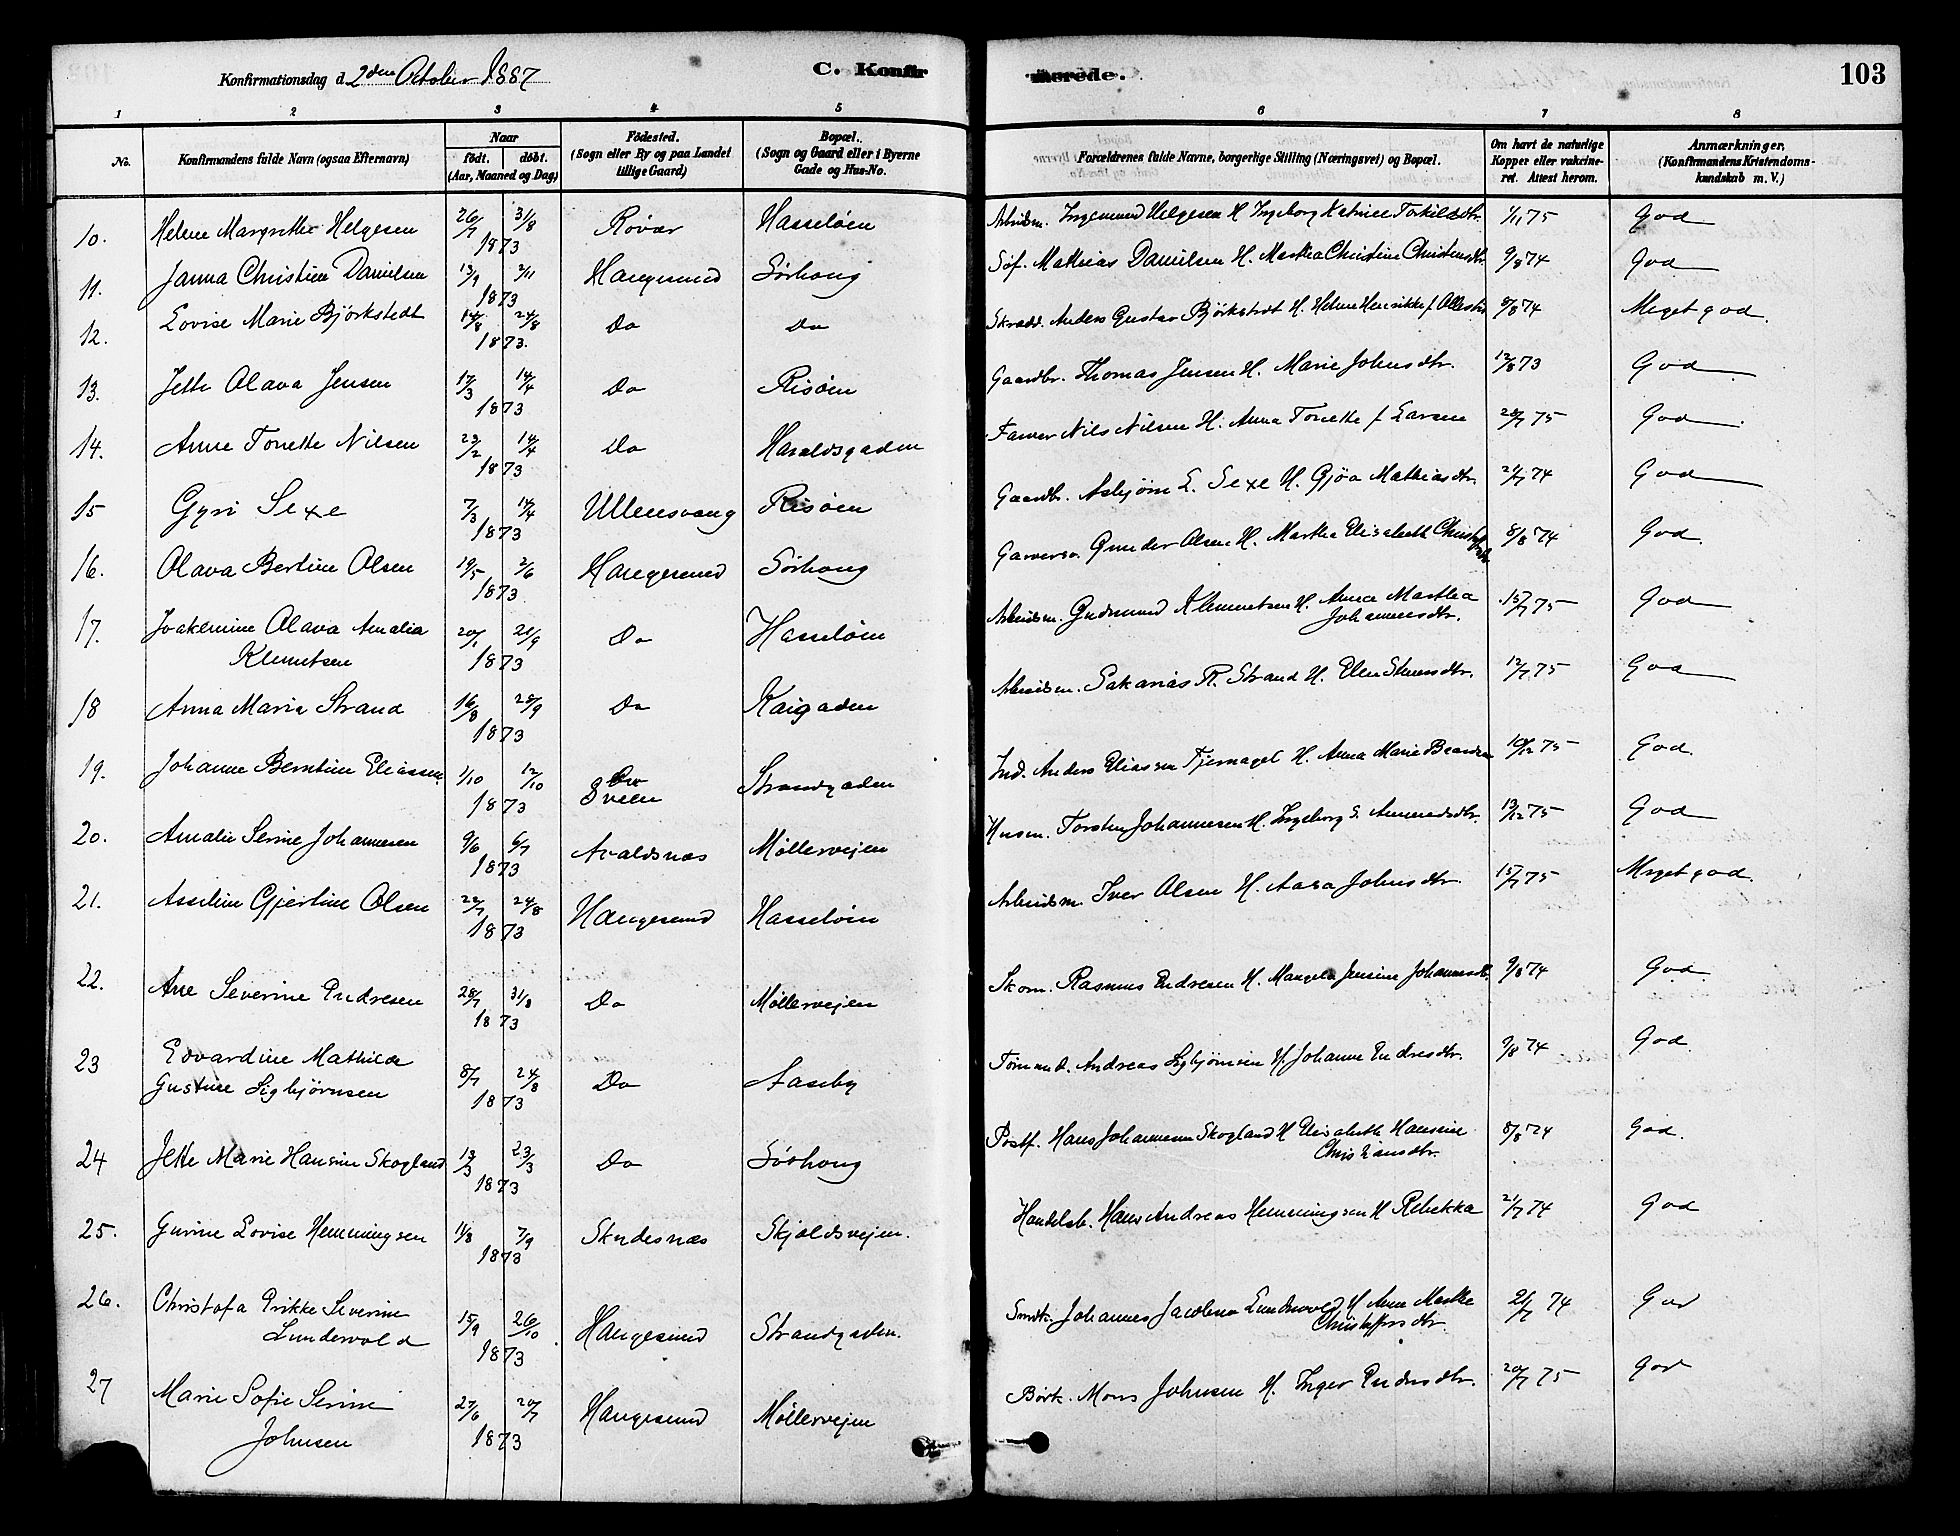 Konfirmationsdag d. 2den October 1887 C. Konfirmerede. 103
1 2 3 4 5 6 7 8
No. Konfirmandens fulde Navn (ogsaa Efternavn) Naar födt. döbt. (Aar, Maaned og Dag) Födested. (Sogn eller By og paa Landet tillige Gaard) Bopæl. (Sogn og Gaard eller i Byerne Gade og Hus-No. Forældrenes fulde Navne, borgerlige Stilling (Næringsvei) og Bopæl. Om havt de naturlige Kopper eller vakcineret. Attest herom. Anmærkninger, (Konfirmandens Kristendomskundskab m. V.)
10. Helene Margrethe Helgesen 26/7 31/8 1873 Rövær Hasselöen Arbeidsm. Ingemund Helgesen H. Ingeborg Katrine Torkildsdtr. 1/11 75 God
11. Janna Christine Danielsen 13/9 2/11 1873 Haugesund Sörhoug Söf. Mathias Danielsen H. Martha Christine Christensdtr. 9/8 74 God
12. Lovise Marie Björkstedt 14/8 24/8 1873. Do Do Skrædd. Anders Gustav Björkstedt H. Helene Henrikke f. 8/8 74 Meget god.
13. Jette Olava Jensen 17/3 14/4 1873 Do Risöen Gaardbr. Thomas Jensen H. Marie Johnsdtr. 12/8 73 God
14. Anne Tonette Nilsen 23/2 14/4 1873 Do Haraldsgaden Farver Nils Nilsen H. Anna Tonette f Larsen 28/7 75 God
15 Gyri Sexe 7/3 14/4 1873 Ullensvang Risöen Gaardbr. Asbjörn L. Sexe H. Gjöa Mathiasdtr. 21/7 74 God
16. Olava Bertine Olsen 19/5 2/6 1873 Haugesund Sörhoug Garversv. Gunder Olsen H. Martha Elisabeth 8/8 74 God.
17. Joakimine Olava Amalia Klemetsen 20/1 21/9 1873 Do Hasselöen Arbeidsm. Gudmund Klemmetsen H. Anna Marthea Johannesdtr. 15/7 75 God
18 Anna Maria Strand 16/8 28/9 1873 Do Kaigaden Arbeidsm. Sakarias R. Strand H. Elen 12/7 75 God
19. Johanne Berntine Eliassen 1/10 12/10 1873 Sveen Strandgaden Ind. Anders Eliassen Tjernagel H. Anna Marie 10/12 75 God.
20. Amalie Serine Johannesen 9/6 6/7 1873 Avaldsnæs Möllervejen Husm. Torsten Johannesen H. Ingeborg S. 13/12 75 God
21. Asseline Gjertine Olsen 22/7 24/8 1873 Haugesund Hasselöen Arbeidsm. Iver Olsen H. Aasa Johnsdtr. 15/7 75 Meget god.
22. Ane Severine Endresen 28/7 31/8 1873 Do Möllervejen Skom. Rasmus Endresen H. Jensine Johannesdtr. 9/8 74 God.
23 Edvardine Mathilde Gustine Sigbjörnsen 8/7 24/8 1873 Do Aaseby Andreas Sigbjörnsen H. Johanne Endresdtr. 9/8 74 God.
24 Jette Marie Hansine Skogland 13/3 23/3 1873 Do Sörhoug Postf. Hans Johannesen Skogland H Elisabeth Hansine Christiansdtr. 8/8 74 God.
25. Gurine Lovise Hemmingsen 11/8 7/9 1873 Skudesnæs Skjoldsvejen. Handelsb. Hans Andreas Hemmingsen H Rebekka 21/7 74 God
26. Christofa Erikke Severine Lundevold 15/9 26/10 1873 Haugesund Strandgaden. Johannes Jacobsen Lundevold H Anne Marthe Christoffersdtr. 21/7 74 God
27 Marie Sofie Serine Johnsen 27/6 20/7 1873 Haugesund Möllervejen Mons Johnsen H. Inger Endresdtr. 20/7 75 God